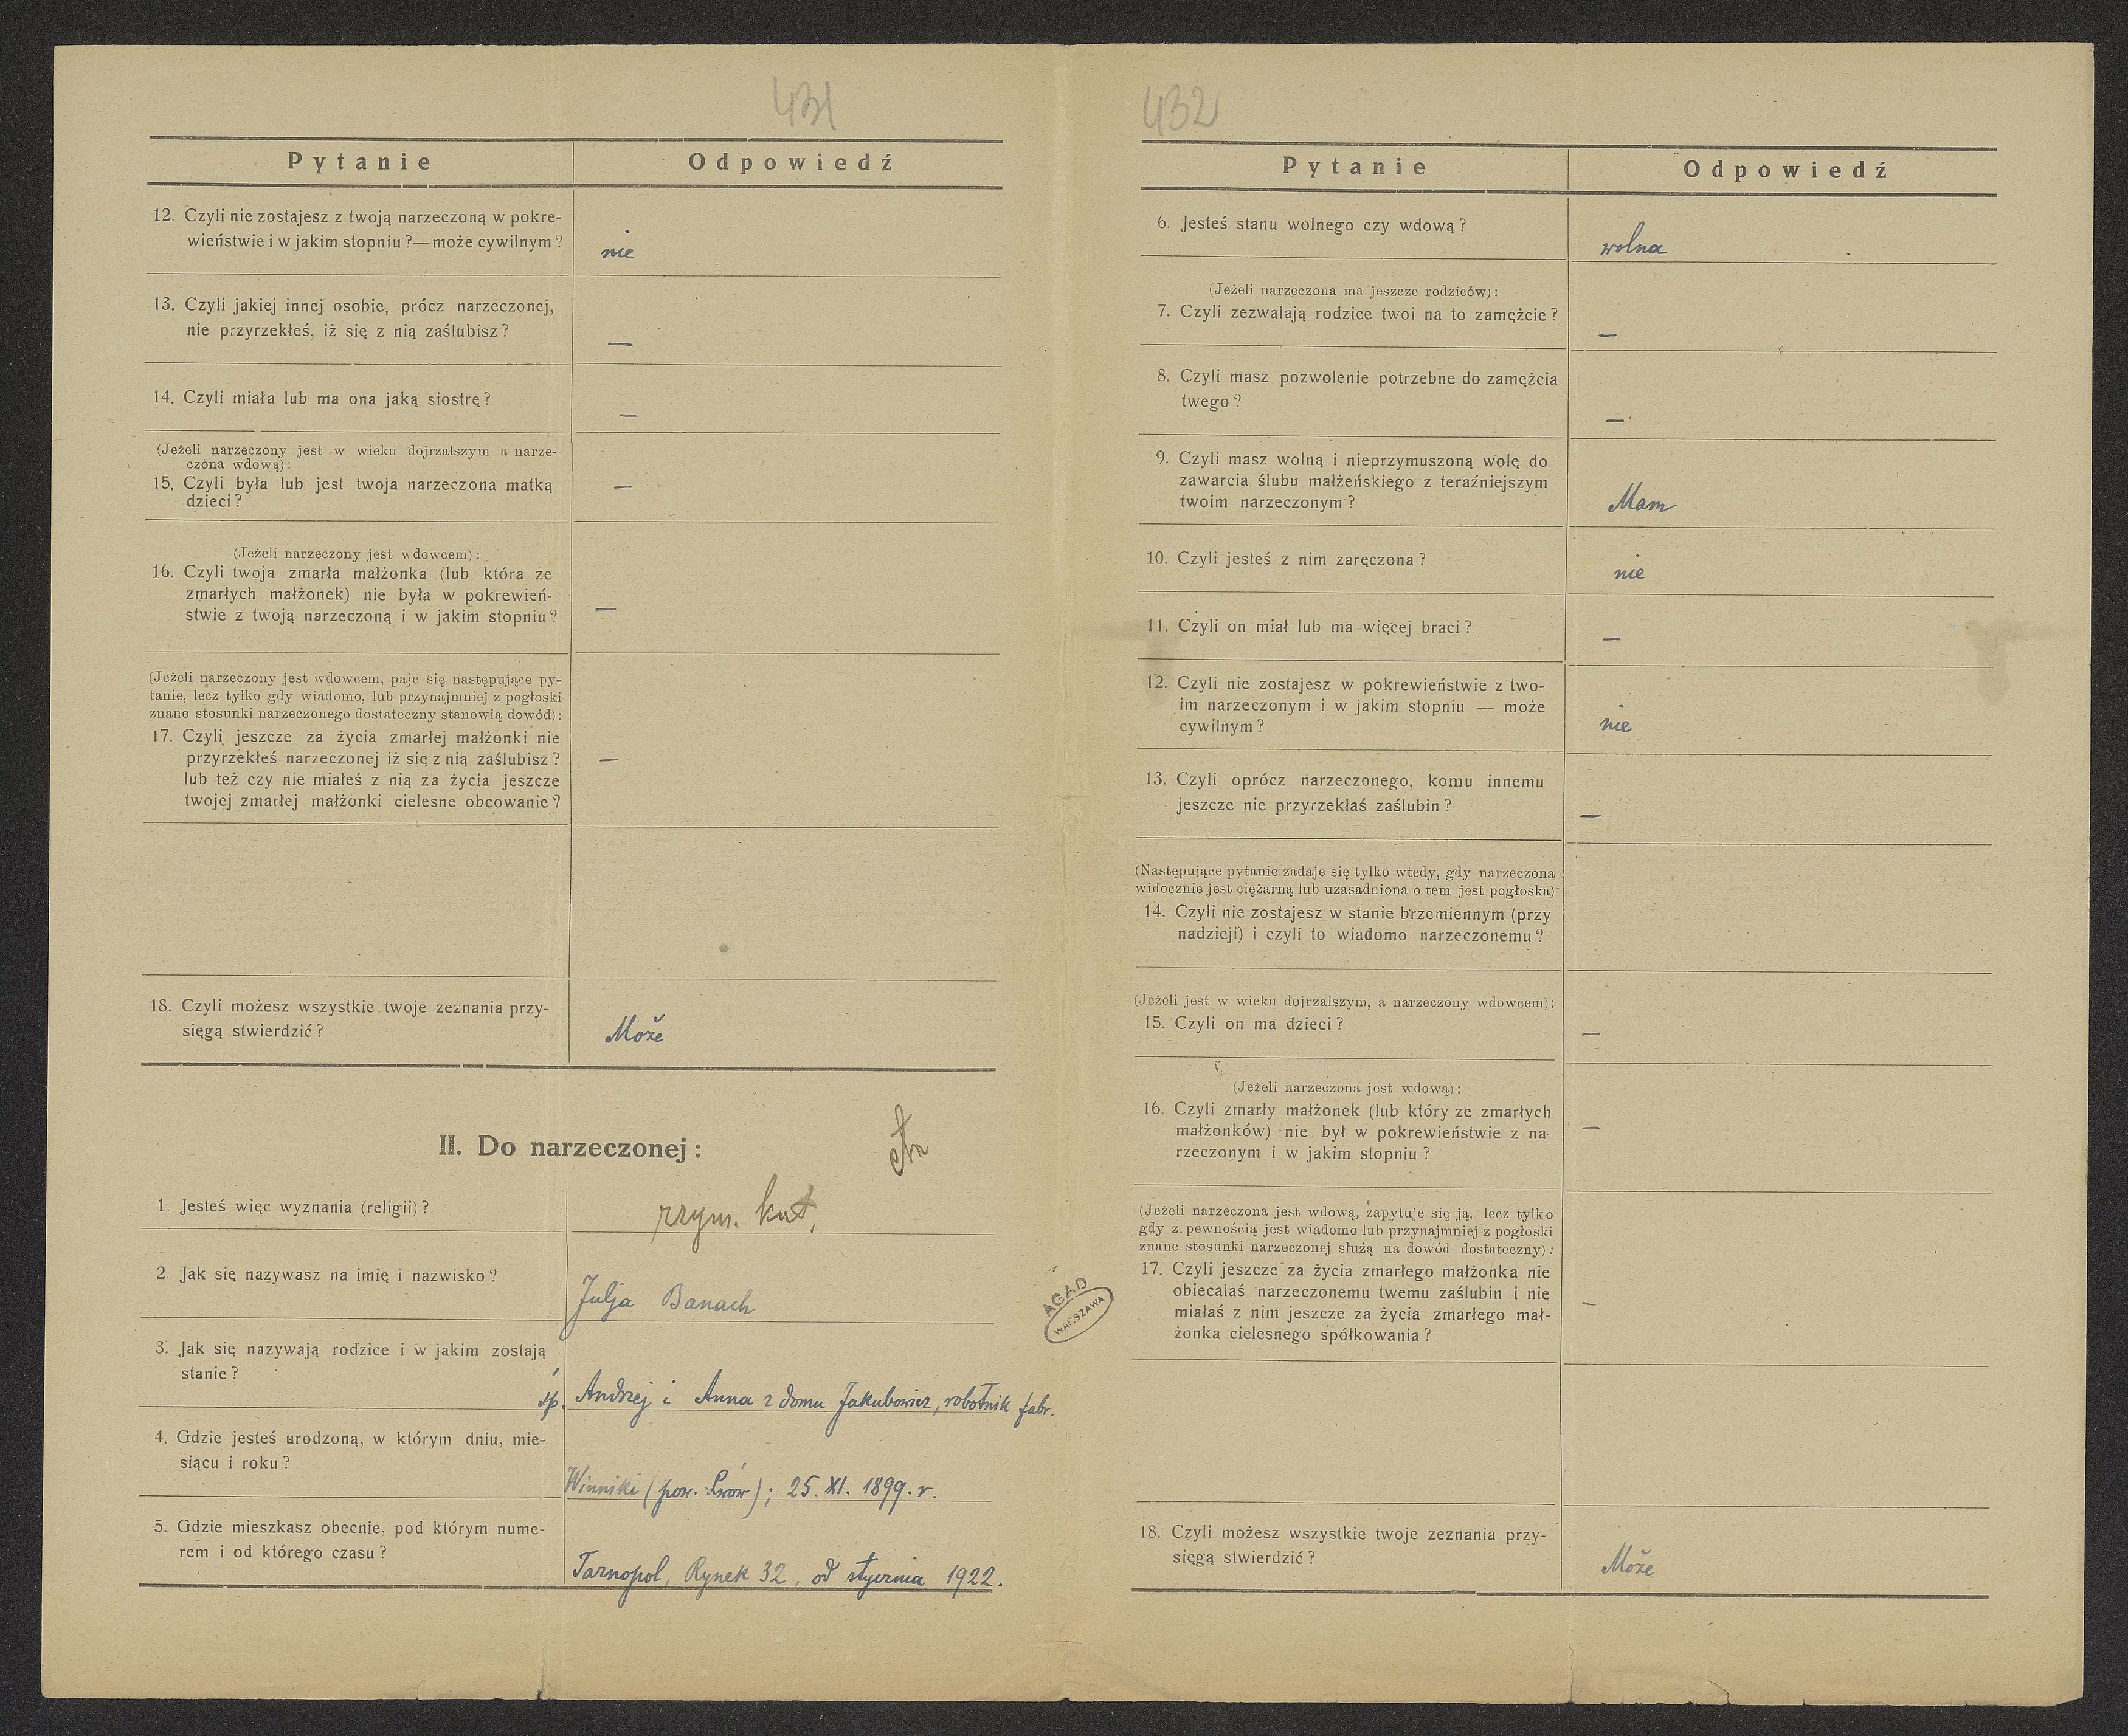 431
Pytanie Odpowiedź
12. Czyli nie zostajesz z twoją narzeczoną w pokre-
wieństwie i w jakim stopniu?—może cywilnym?
nie
13. Czyli jakiej innej osobie, prócz narzeczonej,
nie przyrzekłeś, iż się z nią zaślubisz?
—
14. Czyli miała lub ma ona jaką siostrę?
—
(Jeżeli narzeczony jest w wieku dojrzalszym a narze-
czona wdową):
15. Czyli była lub jest twoja narzeczona matką
dzieci?
—
(Jeżeli narzeczony jest wdowcem):
16. Czyli twoja zmarła małżonka (lub która ze
zmarłych małżonek) nie była w pokrewień-
stwie z twoją narzeczoną i w jakim stopniu?
—
(Jeżeli narzeczony jest wdowcem, paje się następujące py-
tanie, lecz tylko gdy wiadomo, lub przynajmniej z pogłoski
znane stosunki narzeczonego dostateczny stanowią dowód):
17. Czyli jeszcze za życia zmarłej małżonki nie
przyrzekłeś narzeczonej iż się z nią zaślubisz?
lub też czy nie miałeś z nią za życia jeszcze
twojej zmarłej małżonki cielesne obcowanie?
—
18. Czyli możesz wszystkie twoje zeznania przy-
sięgą stwierdzić?
Może
II. Do narzeczonej:
1. Jesteś więc wyznania (religii)?
rzym. kat.
2. Jak się nazywasz na imię i nazwisko?
Julja Banach
3. Jak się nazywają rodzice i w jakim zostają
stanie?
śp. Andrzej i Anna z domu Jakubowicz, robotnik fabr.
4. Gdzie jesteś urodzoną, w którym dniu, mie-
siącu i roku?
Winniki (pow. Lwów); 25. XI. 1899. r.
5. Gdzie mieszkasz obecnie, pod którym nume-
rem i od którego czasu?
Tarnopol, Rynek 32, od stycznia 1922.
AGAD
WARSZAWA
432
Pytanie Odpowiedź
6. Jesteś stanu wolnego czy wdową?
wolna
(Jeżeli narzeczona ma jeszcze rodziców):
7. Czyli zezwalają rodzice twoi na to zamężcie?
—
8. Czyli masz pozwolenie potrzebne do zamężcia
twego?
—
9. Czyli masz wolną i nieprzymuszoną wolę do
zawarcia ślubu małżeńskiego z teraźniejszym
twoim narzeczonym?
Mam
10. Czyli jesteś z nim zaręczona?
nie
11. Czyli on miał lub ma więcej braci?
—
12. Czyli nie zostajesz w pokrewieństwie z two-
im narzeczonym i w jakim stopniu — może
cywilnym?
nie
13. Czyli oprócz narzeczonego, komu innemu
jeszcze nie przyrzekłaś zaślubin?
—
(Następujące pytanie zadaje się tylko wtedy, gdy narzeczona
widocznie jest ciężarną lub uzasadniona o tem jest pogłoska)
14. Czyli nie zostajesz w stanie brzemiennym (przy
nadzieji) i czyli to wiadomo narzeczonemu?
(Jeżeli jest w wieku dojrzalszym, a narzeczony wdowcem):
15. Czyli on ma dzieci?
—
(Jeżeli narzeczona jest wdową):
16. Czyli zmarły małżonek (lub który ze zmarłych
małżonków) nie był w pokrewieństwie z na-
rzeczonym i w jakim stopniu?
—
(Jeżeli narzeczona jest wdową, zapytuje się ją, lecz tylko
gdy z pewnością jest wiadomo lub przynajmniej z pogłoski
znane stosunki narzeczonej służą na dowód dostateczny):
17. Czyli jeszcze za życia zmarłego małżonka nie
obiecałaś narzeczonemu twemu zaślubin i nie
miałaś z nim jeszcze za życia zmarłego mał-
żonka cielesnego spółkowania?
—
18. Czyli możesz wszystkie twoje zeznania przy-
sięgą stwierdzić?
Może